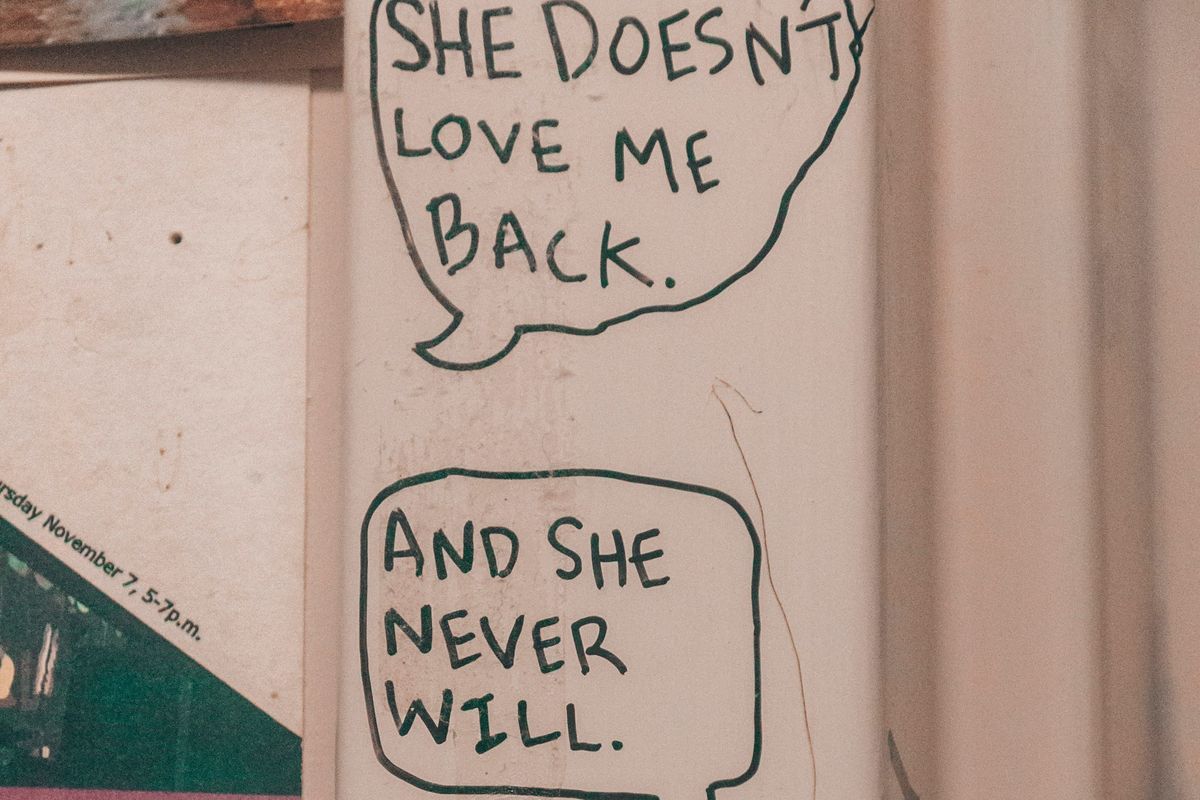 SHE DOESN'T
LOVE ME
BACK.
AND SHE
NEVER
WILL.
November 7, 5-7p.m.